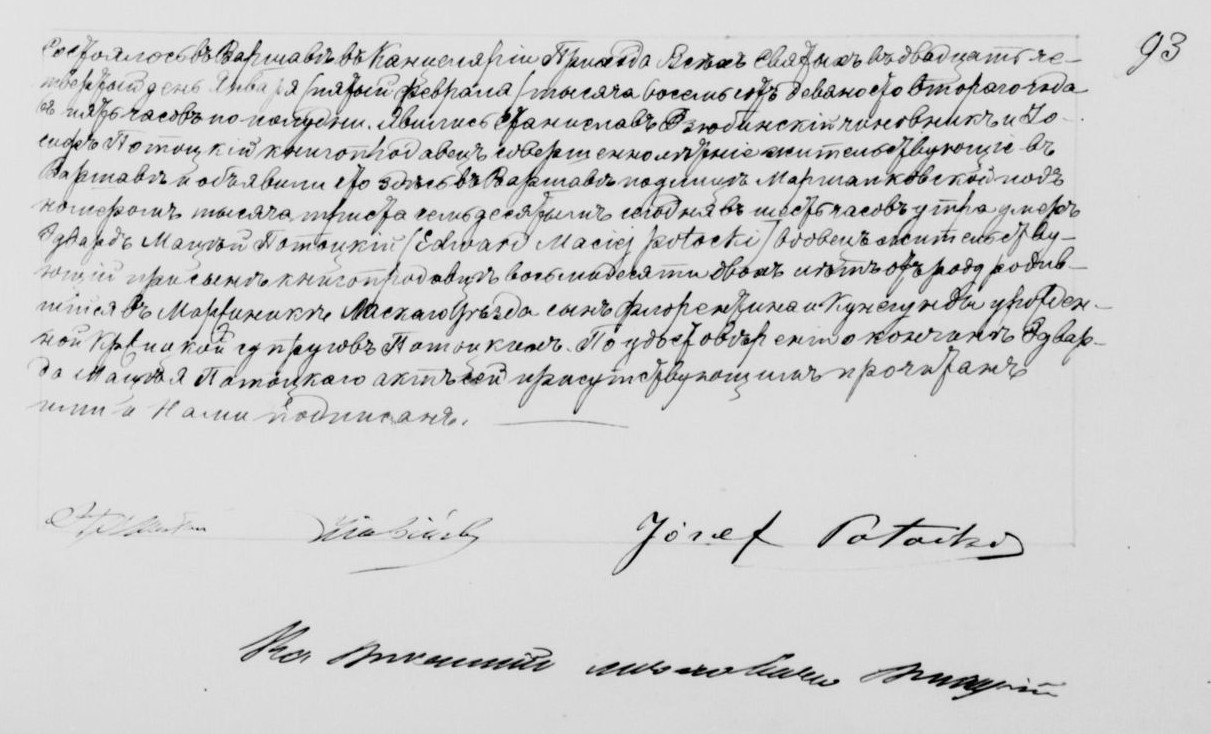 93
Состоялось въ Варшавѣ въ Канцеляріи Прихода Всѣхъ Святыхъ въ двадцать че-
твертый день Января /пятый Февраля/ тысяча восемьсотъ девяносто втораго года
въ пять часовъ по полудни. Явились Станиславъ чиновникъ и Іо-
сифъ Потоцкій книгопродавецъ совершеннолѣтніе жительствующіе въ
Варшавѣ и объявили что здѣсь въ Варшавѣ на улицѣ Маршалковской подъ
номеромъ тысяча триста семьдесятымъ сегодня въ шесть часовъ утра умеръ
Эдвардъ Мацѣй Потоцкій /Edward Maciej Potocki/ вдовецъ жительству-
ющій при сынѣ книгопродавцѣ восьмидесяти двохъ лѣтъ отъ роду родив-
шійся въ Ласкаго Уѣзда сынъ Флорентина и Кунегунды урожден-
ной супруговъ Потоцкихъ. По удостовѣреніи о кончинѣ Эдвар-
да Мацѣя Потоцкаго актъ сей присутствующимъ прочитанъ
ими и Нами подписанъ.
Józef Potocki